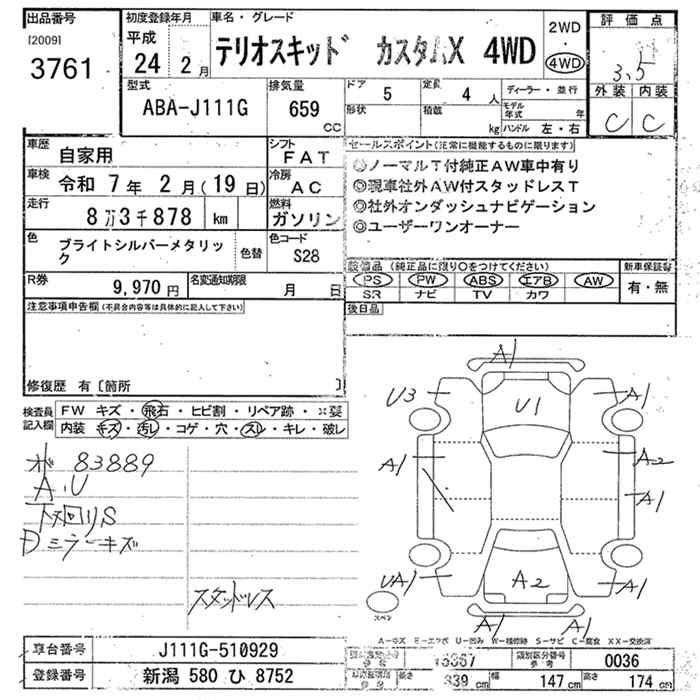 出品番号 初度登録年月 車名・グレード 評価点
[2009] 平成 2WD
3761 24 2月 テリオスキッド カスタムX 4WD 4WD 3.5
型式 排気量 ドア 5 定員 4 人 ディーラー・並行 外装 内装
ABA-J111G 659 cc 形状 積載 kg モデル年式 年 C C
ハンドル 左・右
車歴 自家用 シフト FAT セールスポイント(正常に機能するものに限ります)
車検 令和 7年 2月(19日) 冷房 AC ◎ノーマルT付純正AW車中有り
◎現車社外AW付スタッドレスT
走行 8万3千878 km 燃料 ガソリン ◎社外オンダッシュナビゲーション
◎ユーザーワンオーナー
色 ブライトシルバーメタリック 色替 色コード S28
R券 9,970円 名変通知期限 月 日 装備品(純正品に限り〇をつけてください) 新車保証書
PS PW ABS エアB AW 有・無
SR ナビ TV カワ
注意事項申告欄(不具合内容等は具体的に記入して下さい) 後日品
修復歴 有〔箇所 〕
検査員記入欄 FW キズ・飛石・ヒビ割・リペア跡・×要
内装 キズ・汚レ・コゲ・穴・スレ・キレ・破レ
83889
A・U
下廻りS
Dミラーキズ
スタッドレス
A1
U3 U1 A1
A1 A2
A1
UA1 A2 A1
A1 A1
スペア
A-キズ E-エクボ U-凹み W-補修跡 S-サビ C-腐食 XX-交換済
車台番号 J111G-510929 類別区分番号 参考 0036
登録番号 新潟 580 ひ 8752 長さ 339 cm 幅 147 cm 高さ 174 cm